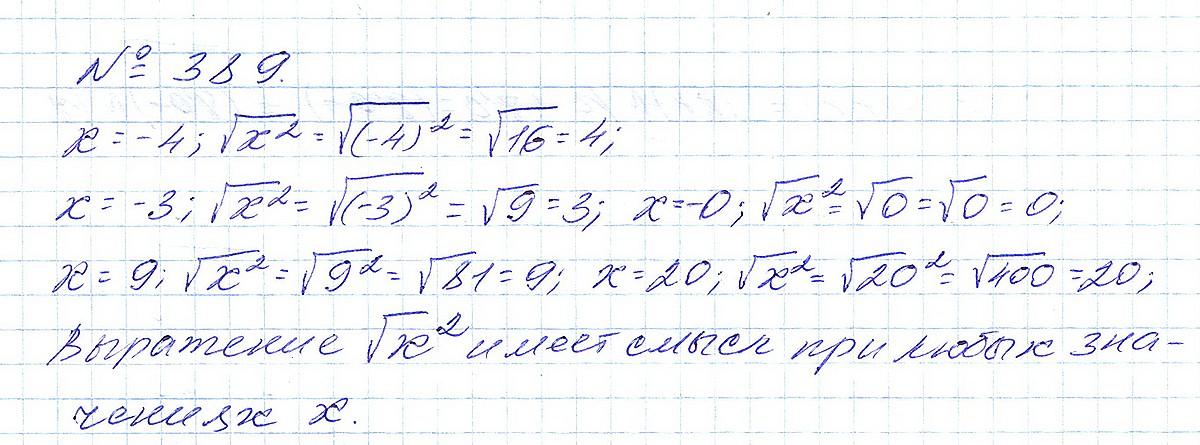 № 389.
x = -4; √x² = √(-4)² = √16 = 4;
x = -3; √x² = √(-3)² = √9 = 3; x = -0; √x² = √0 = √0 = 0;
x = 9; √x² = √9² = √81 = 9; x = 20; √x² = √20² = √400 = 20;
Выражение √x² имеет смысл при любых зна-
чениях x.